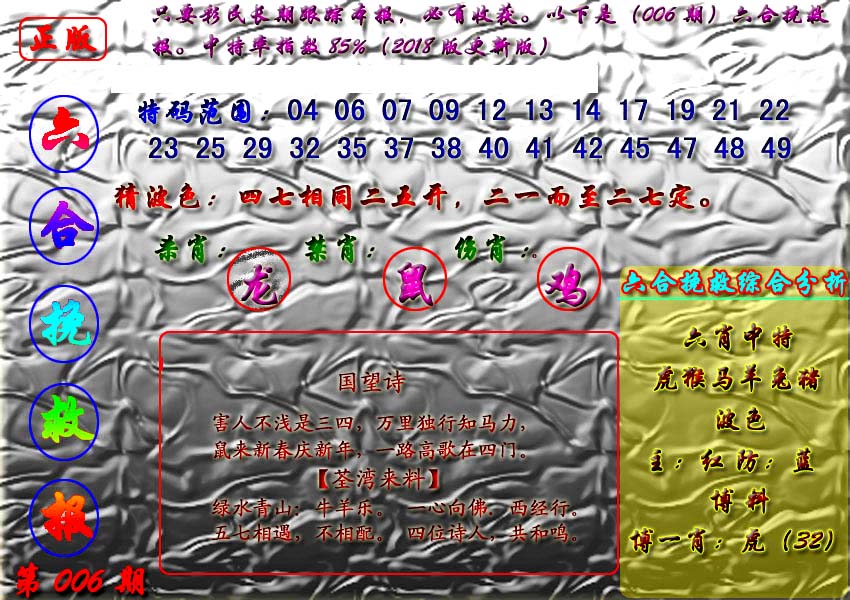 正版
只要彩民长期跟踪本报，必有收获。以下是（006期）六合挽救
报。中特率指数85%（2018版更新版）
六合挽救报
第006期
特码范围：04 06 07 09 12 13 14 17 19 21 22
23 25 29 32 35 37 38 40 41 42 45 47 48 49
猜波色：四七相同二五开，二一而至二七定。
杀肖：龙 禁肖：鼠 伤肖：鸡。
国望诗
害人不浅是三四，万里独行知马力，
鼠来新春庆新年，一路高歌在四门。
【荃湾来料】
绿水青山；牛羊乐。 一心向佛．西经行。
五七相遇，不相配。 四位诗人，共和鸣。
六合挽救综合分析
六肖中特
虎猴马羊兔猪
波色
主：红 防：蓝
博料
博一肖：虎（32）